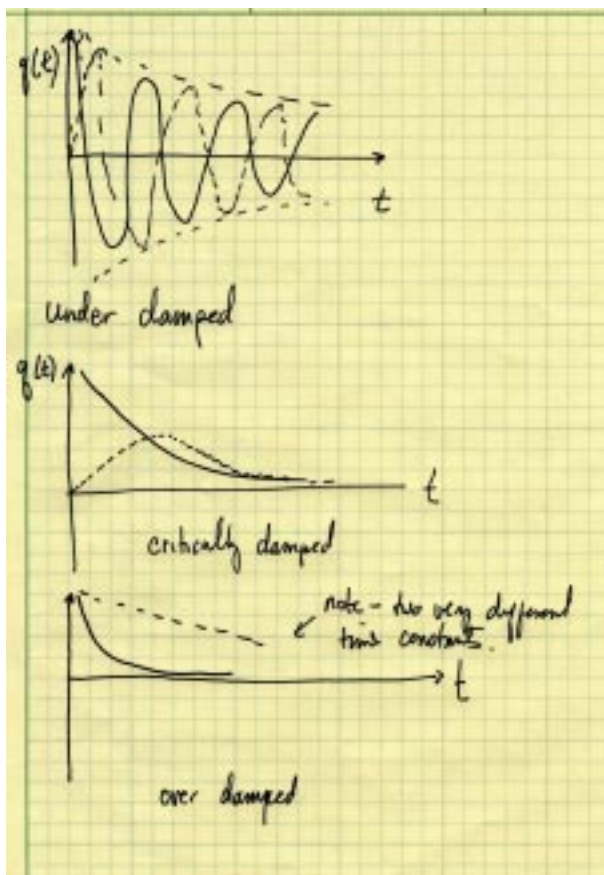 q(t)
t
under damped
q(t)
t
critically damped
note - two very different
time constants.
t
over damped